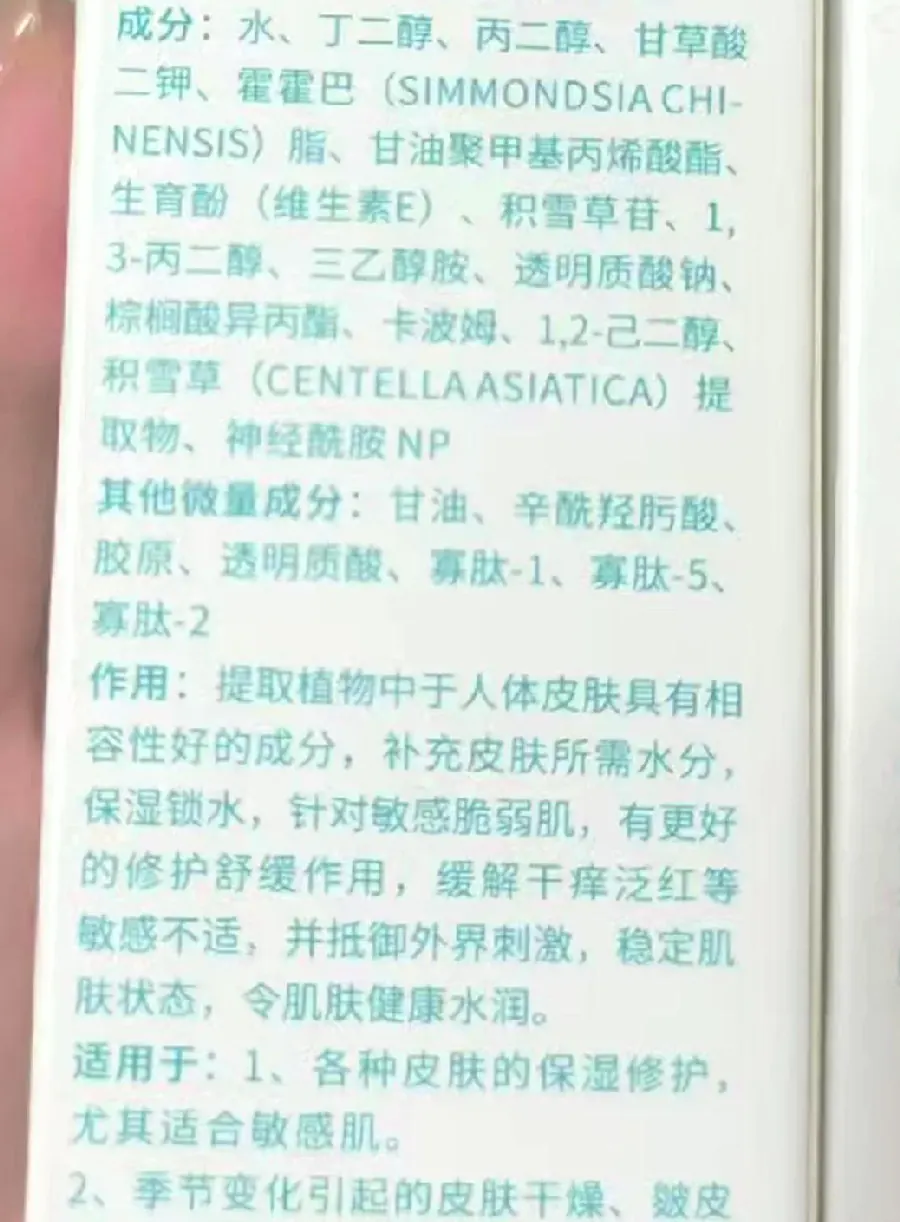 成分：水、丁二醇、丙二醇、甘草酸
二钾、霍霍巴（SIMMONDSIA CHI-
NENSIS）脂、甘油聚甲基丙烯酸酯、
生育酚（维生素E）、积雪草苷、1,
3-丙二醇、三乙醇胺、透明质酸钠、
棕榈酸异丙酯、卡波姆、1,2-己二醇、
积雪草（CENTELLA ASIATICA）提
取物、神经酰胺 NP
其他微量成分：甘油、辛酰羟肟酸、
胶原、透明质酸、寡肽-1、寡肽-5、
寡肽-2
作用：提取植物中于人体皮肤具有相
容性好的成分，补充皮肤所需水分，
保湿锁水，针对敏感脆弱肌，有更好
的修护舒缓作用，缓解干痒泛红等
敏感不适，并抵御外界刺激，稳定肌
肤状态，令肌肤健康水润。
适用于：1、各种皮肤的保湿修护，
尤其适合敏感肌。
2、季节变化引起的皮肤干燥、皴皮